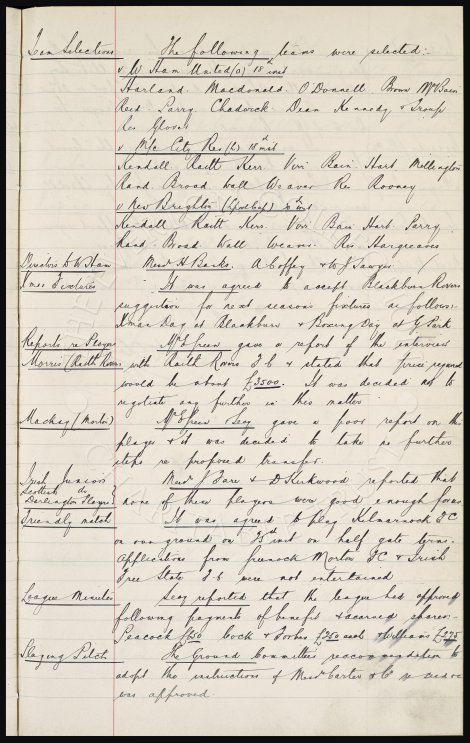 Team Selections The following teams were selected:-
v W Ham United (a) 18th inst
Harland Macdonald O'Donnell Brown McBain
Reid Parry Chadwick Dean Kennedy & Troup
Res Glover
v M/c City Res (h) 18th inst
Kendall Raitt Kerr Virr Bain Hart Millington
Rand Broad Wall Weaver Res Rooney
v New Brighton (Lpool Cup) inst
Kendall Raitt Kerr Virr Bain Hart Parry
Rand Broad Wall Weaver Res Hargreaves
Directors to W Ham Messrs H Banks, A Coffey & W J Sawyer
Xmas Fixtures It was agreed to accept Blackburn Rovers
suggestion for next seasons fixtures as follows:
Xmas Day at Blackburn & Boxing Day at G Park
Reports re Players Mr Green gave a report of the interview
Morris (Raith Rovers) with Raith Rovers FC & stated that price required
would be about £3500. It was decided not to
negotiate any further in this matter
Mackay (Morton) Mr Green & Secy gave a poor report on this
player & it was decided to take no further
steps re proposed transfer.
Irish Juniors Messrs J Fare & D Kirkwood reported that
Scottish do
Darlington Player none of these players were good enough for us
Friendly match It was agreed to play Kilmarnock FC
on our ground on inst on half gate terms.
Applications from Greenock Morton FC & Irish
Free State were not entertained
League Minutes Secy reported that the league had approved
following payments of benefit & accrued shares:
Peacock £650 Cock & Forbes £350 each Williams £275
Playing Pitch The Ground Committee's recommendation to
adopt the instructions of Messrs Carter & Co re seed &c
was approved.